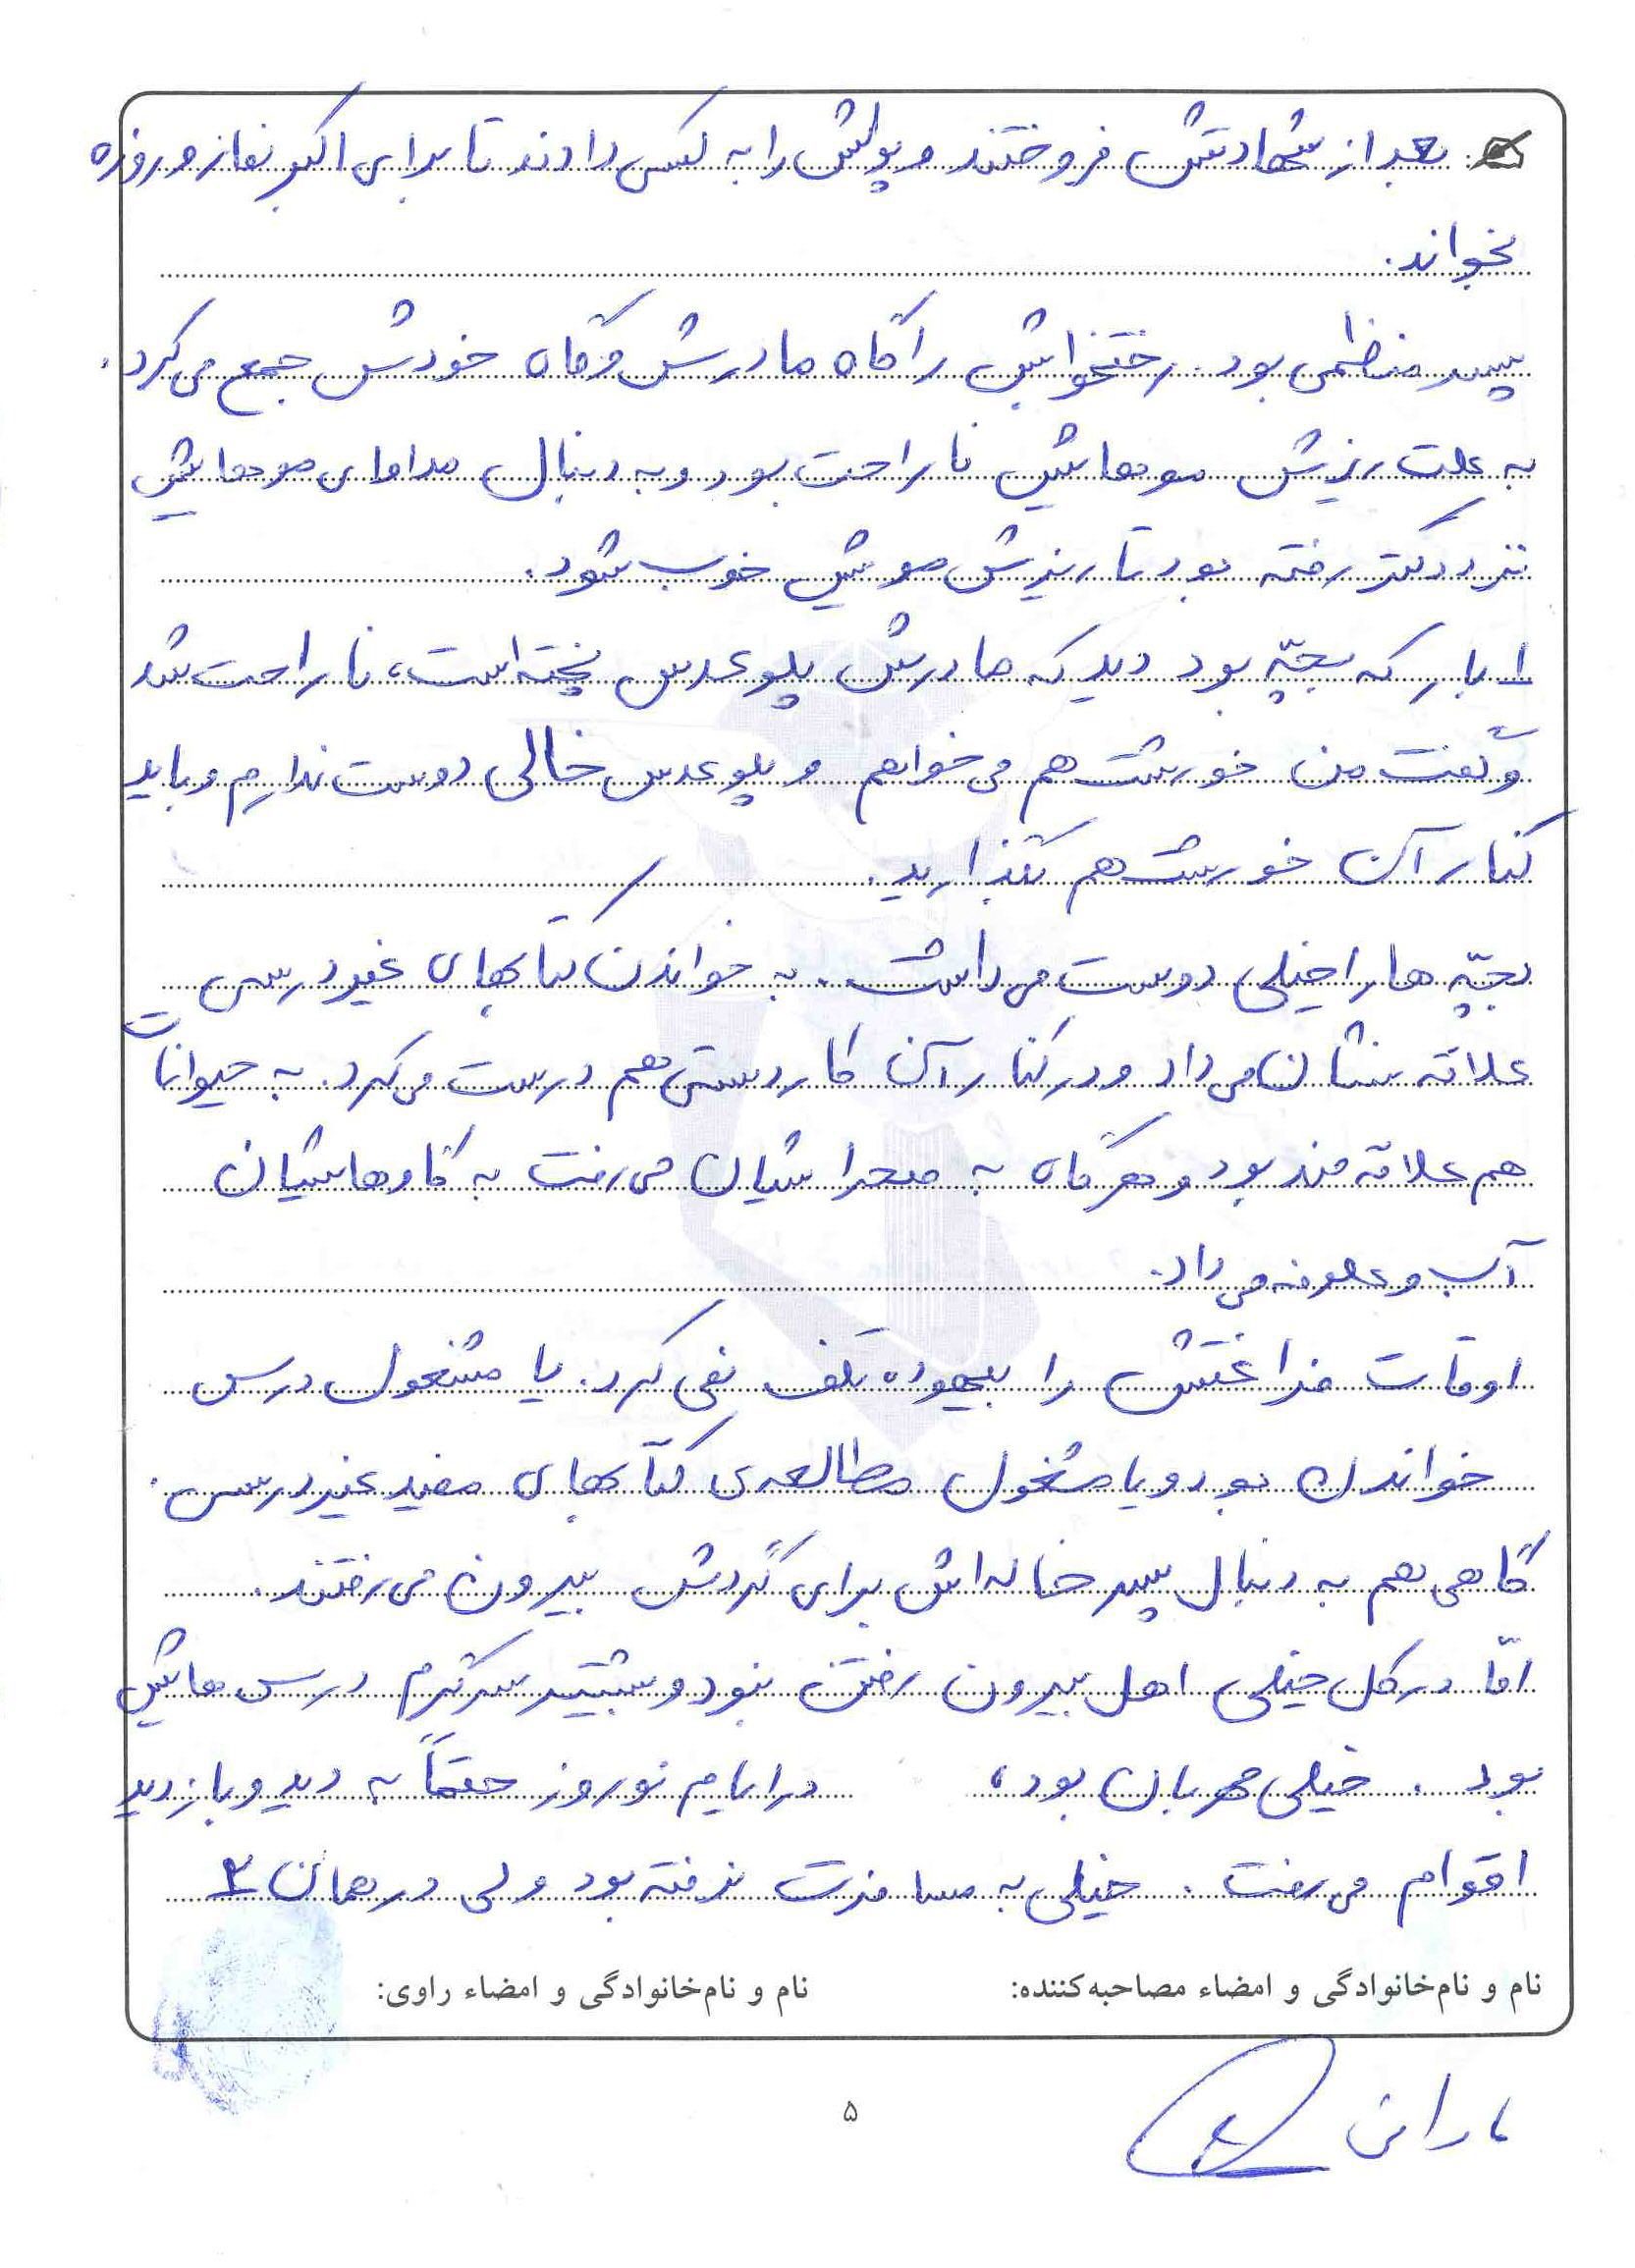 بعد از شهادتش فروختند و پولش را به کسی دادند تا برای اکبر نماز و روزه
بخواند.
پسر منظمی بود. رختخوابش را گاه مادرش و گاه خودش جمع می‌کرد.
به علت ریزش موهایش ناراحت بود و به دنبال مداوای موهایش
نزد دکتر رفته بود تا ریزش مویش خوب شود.
۱ بار که بچّه بود دید که مادرش پلو عدس پخته است، ناراحت شد
و گفت من خورشت هم می‌خواهم و پلو عدس خالی دوست ندارم و باید
کنار آن خورشت هم بگذارید.
بچّه ها را خیلی دوست می‌داشت. به خواندن کتابهای غیر درسی
علاقه نشان می‌داد و در کنار آن کاردستی هم درست می‌کرد. به حیوانات
هم علاقه مند بود و هرگاه به صحرا شیان می‌رفت به گاوهاشیان
آب و علوفه می‌داد.
اوقات فراغتش را بیهوده تلف نمی‌کرد. یا مشغول درس
خواندن بود و یا مشغول مطالعه‌ی کتابهای مفید غیر درسی.
گاهی هم به دنبال پسر خاله‌اش برای گردش بیرون می‌رفتند.
امّا در کل خیلی اهل بیرون رفتن نبود و بیشتر سرگرم درس هایش
بود. خیلی مهربان بود، در ایام نوروز حتماً به دید و بازدید
اقوام می‌رفت. خیلی به مسافرت نرفته بود ولی در همان ۲
نام و نام‌خانوادگی و امضاء مصاحبه‌کننده: نام و نام‌خانوادگی و امضاء راوی:
۵